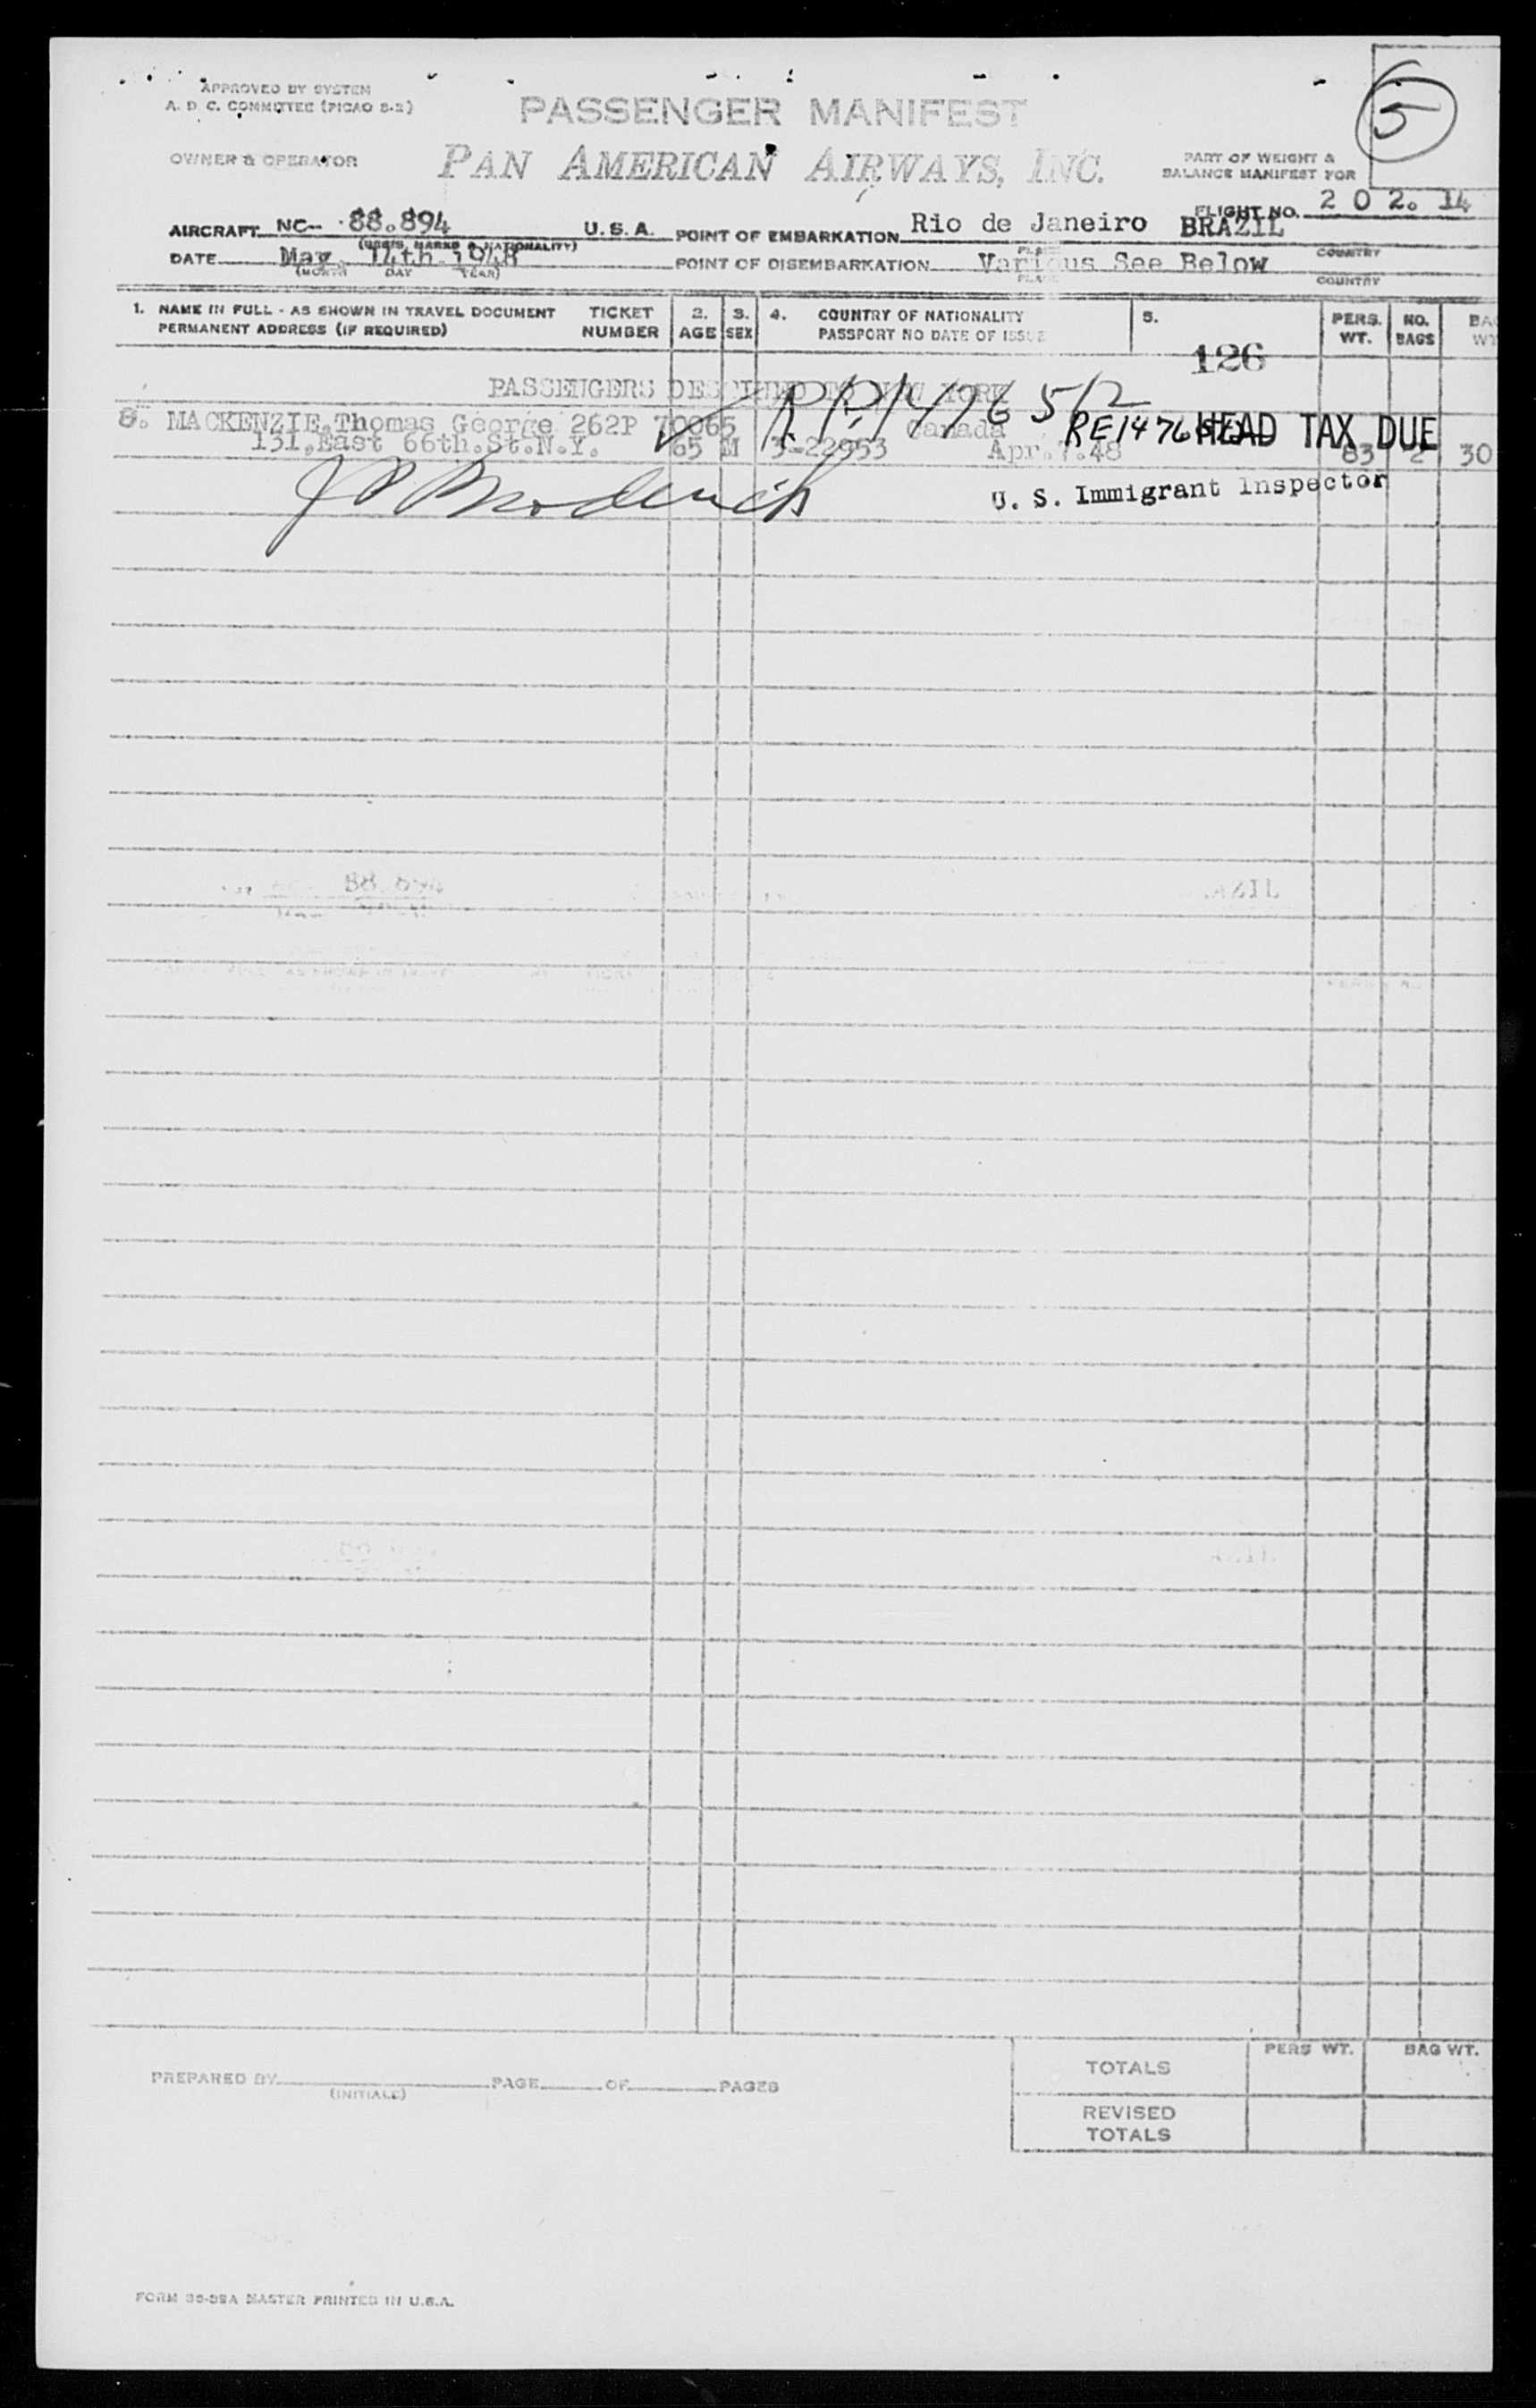 APPROVED BY SYSTEM
A. D. C. COMMITTEE (PICAO S-2)
PASSENGER MANIFEST
5
OWNER & OPERATOR
PAN AMERICAN AIRWAYS, INC.
PART OF WEIGHT &
BALANCE MANIFEST FOR
FLIGHT NO. 202. 14
AIRCRAFT NC- 88.894 U.S.A. POINT OF EMBARKATION Rio de Janeiro BRAZIL
(REGIS. MARKS & NATIONALITY) PLACE COUNTRY
DATE May. 14th. 1948 POINT OF DISEMBARKATION Various See Below
(MONTH DAY YEAR) PLACE COUNTRY
1. NAME IN FULL - AS SHOWN IN TRAVEL DOCUMENT TICKET 2. 3. 4. COUNTRY OF NATIONALITY 5. PERS. NO.
PERMANENT ADDRESS (IF REQUIRED) NUMBER AGE SEX PASSPORT NO DATE OF ISSUE WT. BAGS
126
PASSENGERS DESTINED TO NEW YORK
8. MACKENZIE,Thomas George 262P 70065 Canada HEAD TAX DUE
131,East 66th.St.N.Y. 65 M 3-22953 Apr.7.48 83 2 30
U. S. Immigrant Inspector
88.894
PREPARED BY PAGE OF PAGES
(INITIALS)
PERS WT. BAG WT.
TOTALS
REVISED
TOTALS
FORM 36-39A MASTER PRINTED IN U.S.A.